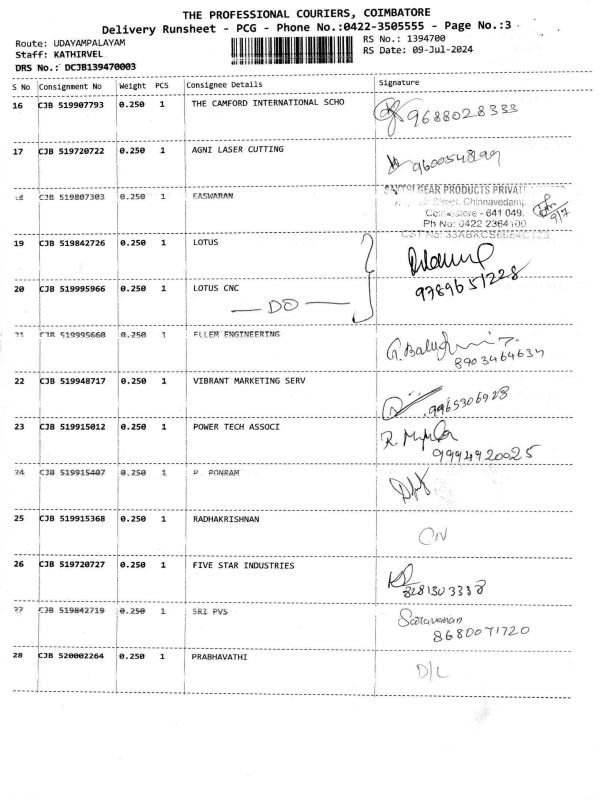 THE PROFESSIONAL COURIERS, COIMBATORE
Delivery Runsheet - PCG - Phone No.:0422-3505555 - Page No.:3
Route: UDAYAMPALAYAM RS No.: 1394700
Staff: KATHIRVEL RS Date: 09-Jul-2024
DRS No.: DCJB139470003
S No Consignment No Weight PCS Consignee Details Signature
16 CJB 519907793 0.250 1 THE CAMFORD INTERNATIONAL SCHO
9688028333
17 CJB 519720722 0.250 1 AGNI LASER CUTTING
GEAR PRODUCTS PRIVAT
18 CJB 519807303 0.250 1 EASWARAN
Street, Chinnavedamp
Coimbatore - 641 049.
9/7
Ph No: 0422 2364100
19 CJB 519842726 0.250 1 LOTUS
20 CJB 519995966 0.250 1 LOTUS CNC
9789651228
— DO —
21 CJB 519995660 0.250 1 ELLEM ENGINEERING
8903464634
22 CJB 519948717 0.250 1 VIBRANT MARKETING SERV
9965306928
23 CJB 519915012 0.250 1 POWER TECH ASSOCI
9994920025
24 CJB 519915407 0.250 1 P. PONRAM
25 CJB 519915368 0.250 1 RADHAKRISHNAN
CN
26 CJB 519720727 0.250 1 FIVE STAR INDUSTRIES
8281303338
27 CJB 519842719 0.250 1 SRI PVS
Saravanan
8680071720
28 CJB 520002264 0.250 1 PRABHAVATHI
D/L